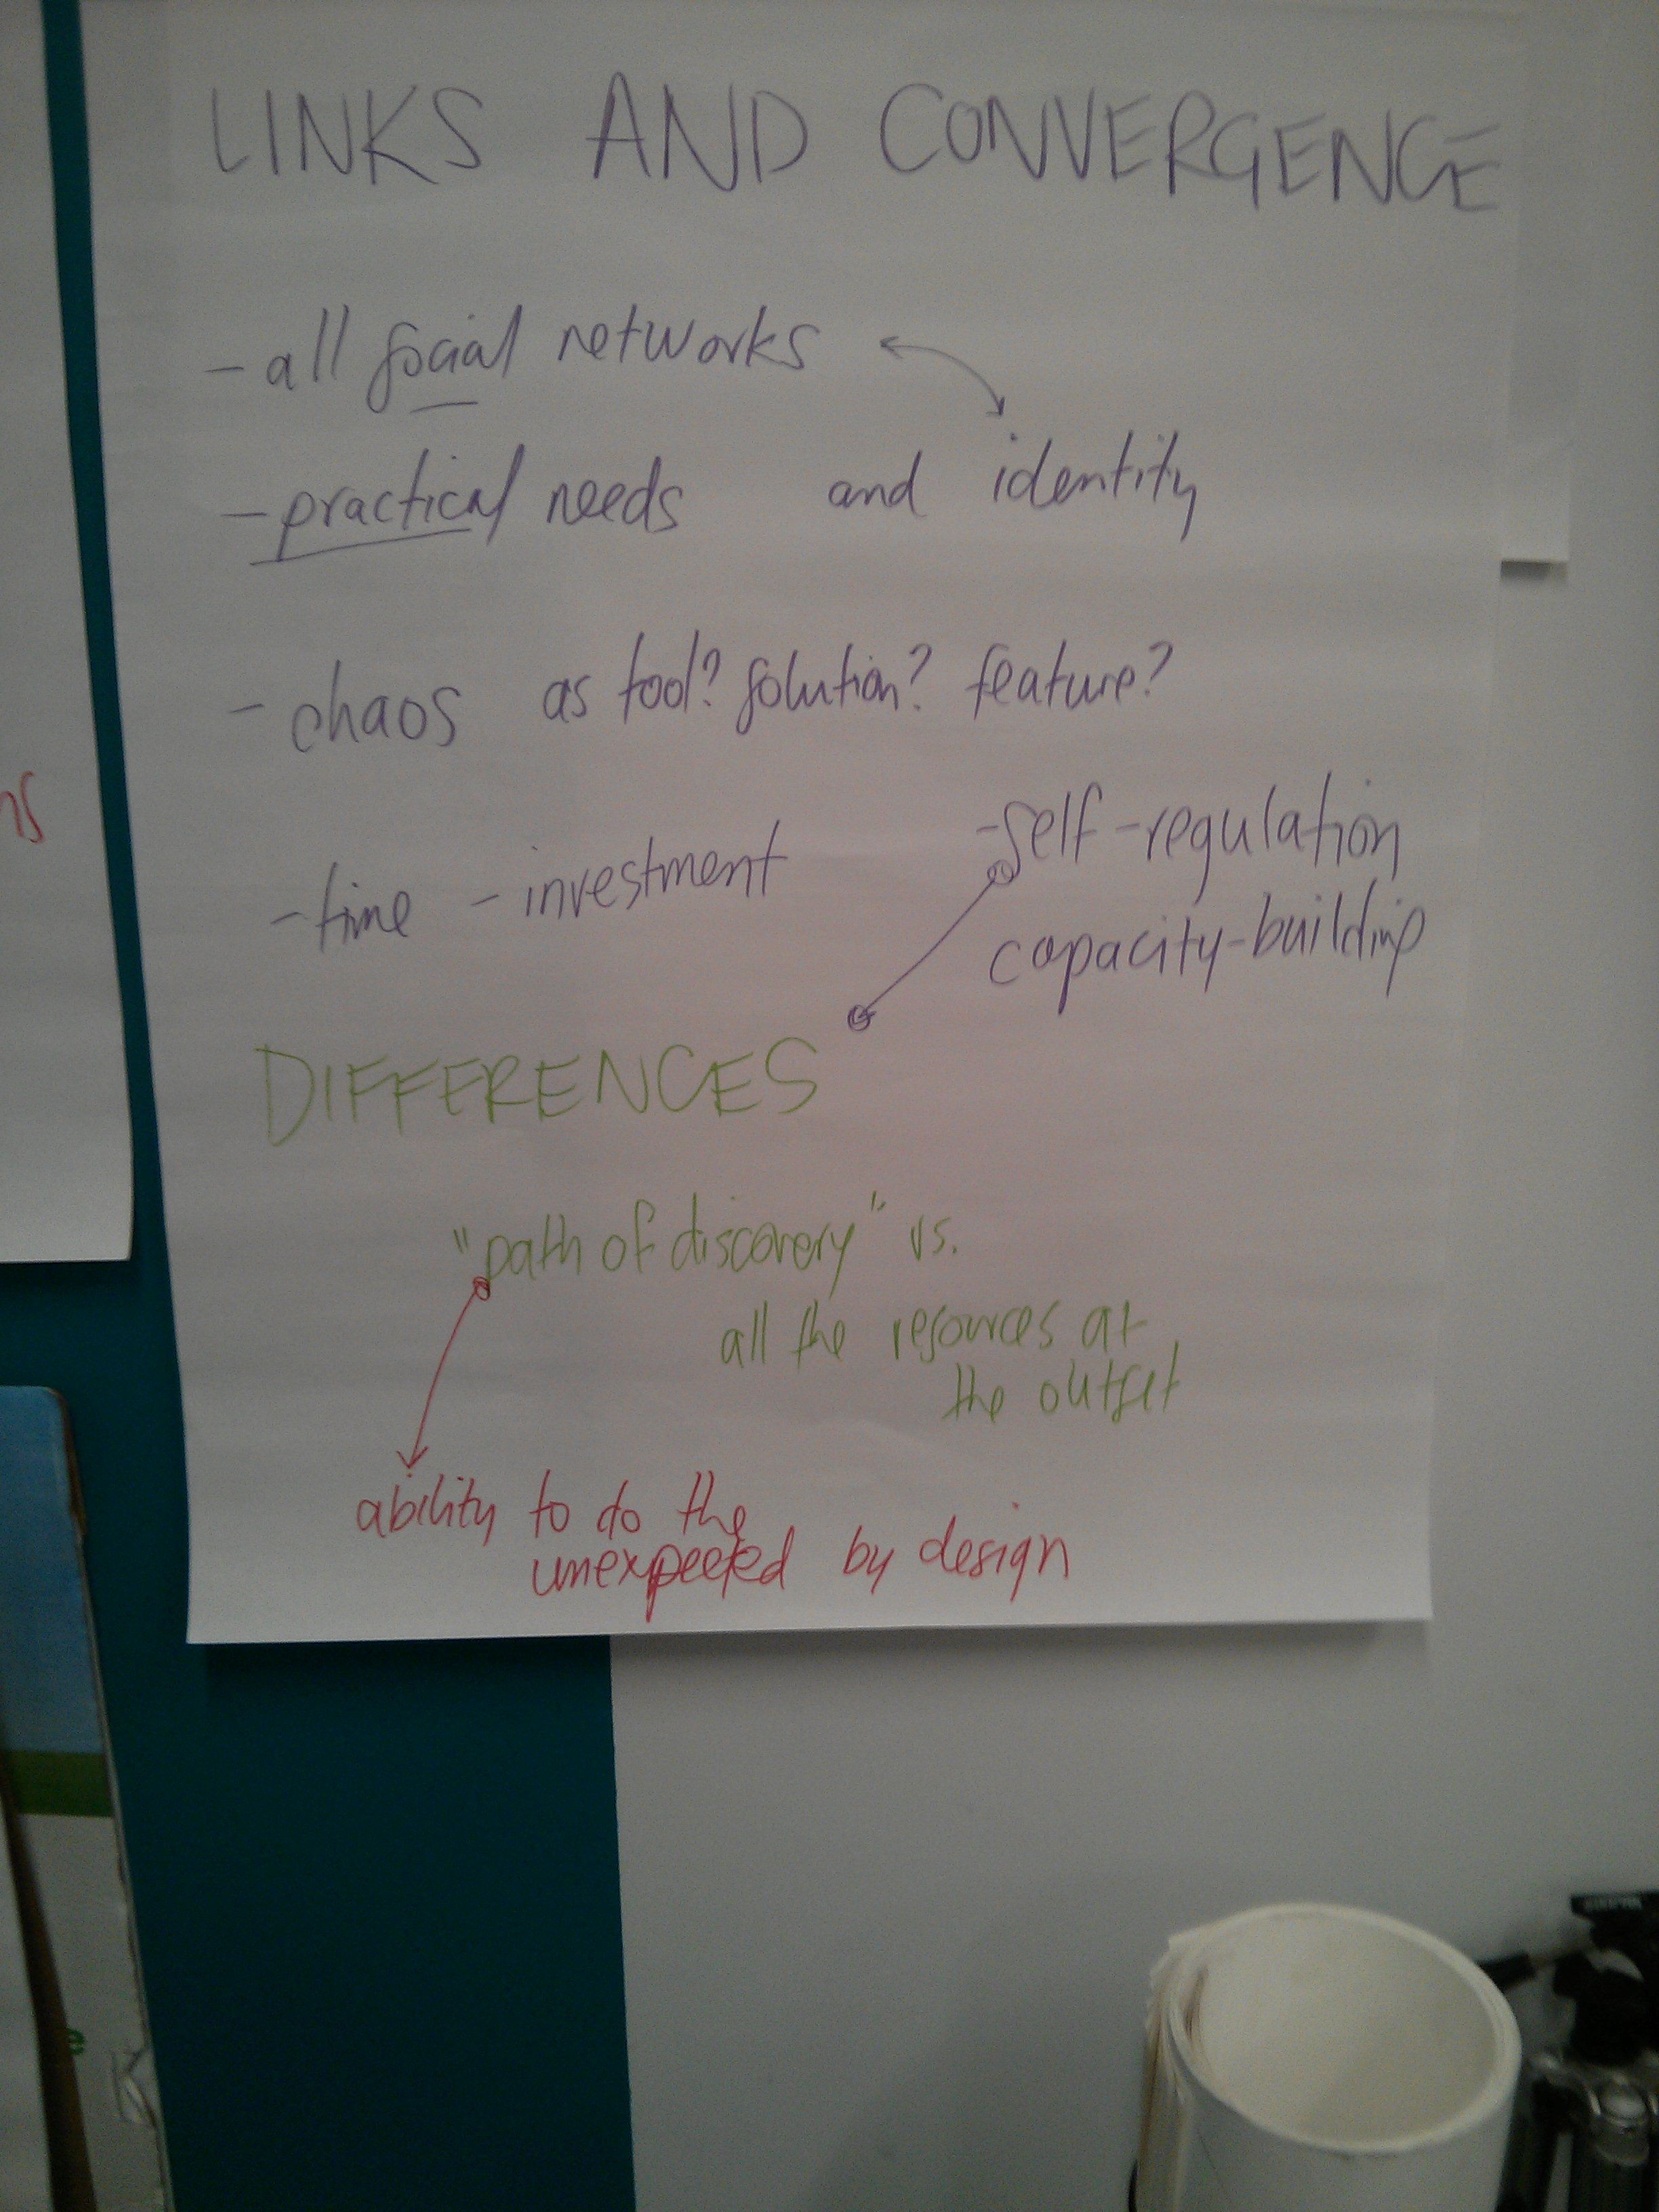 LINKS AND CONVERGENCE
- all social networks
- practical needs and identity
- chaos as tool? solution? feature?
- time - investment
- self-regulation
capacity-building
DIFFERENCES
"path of discovery" vs.
all the resources at
the outset
ability to do the
unexpected by design
ns
e